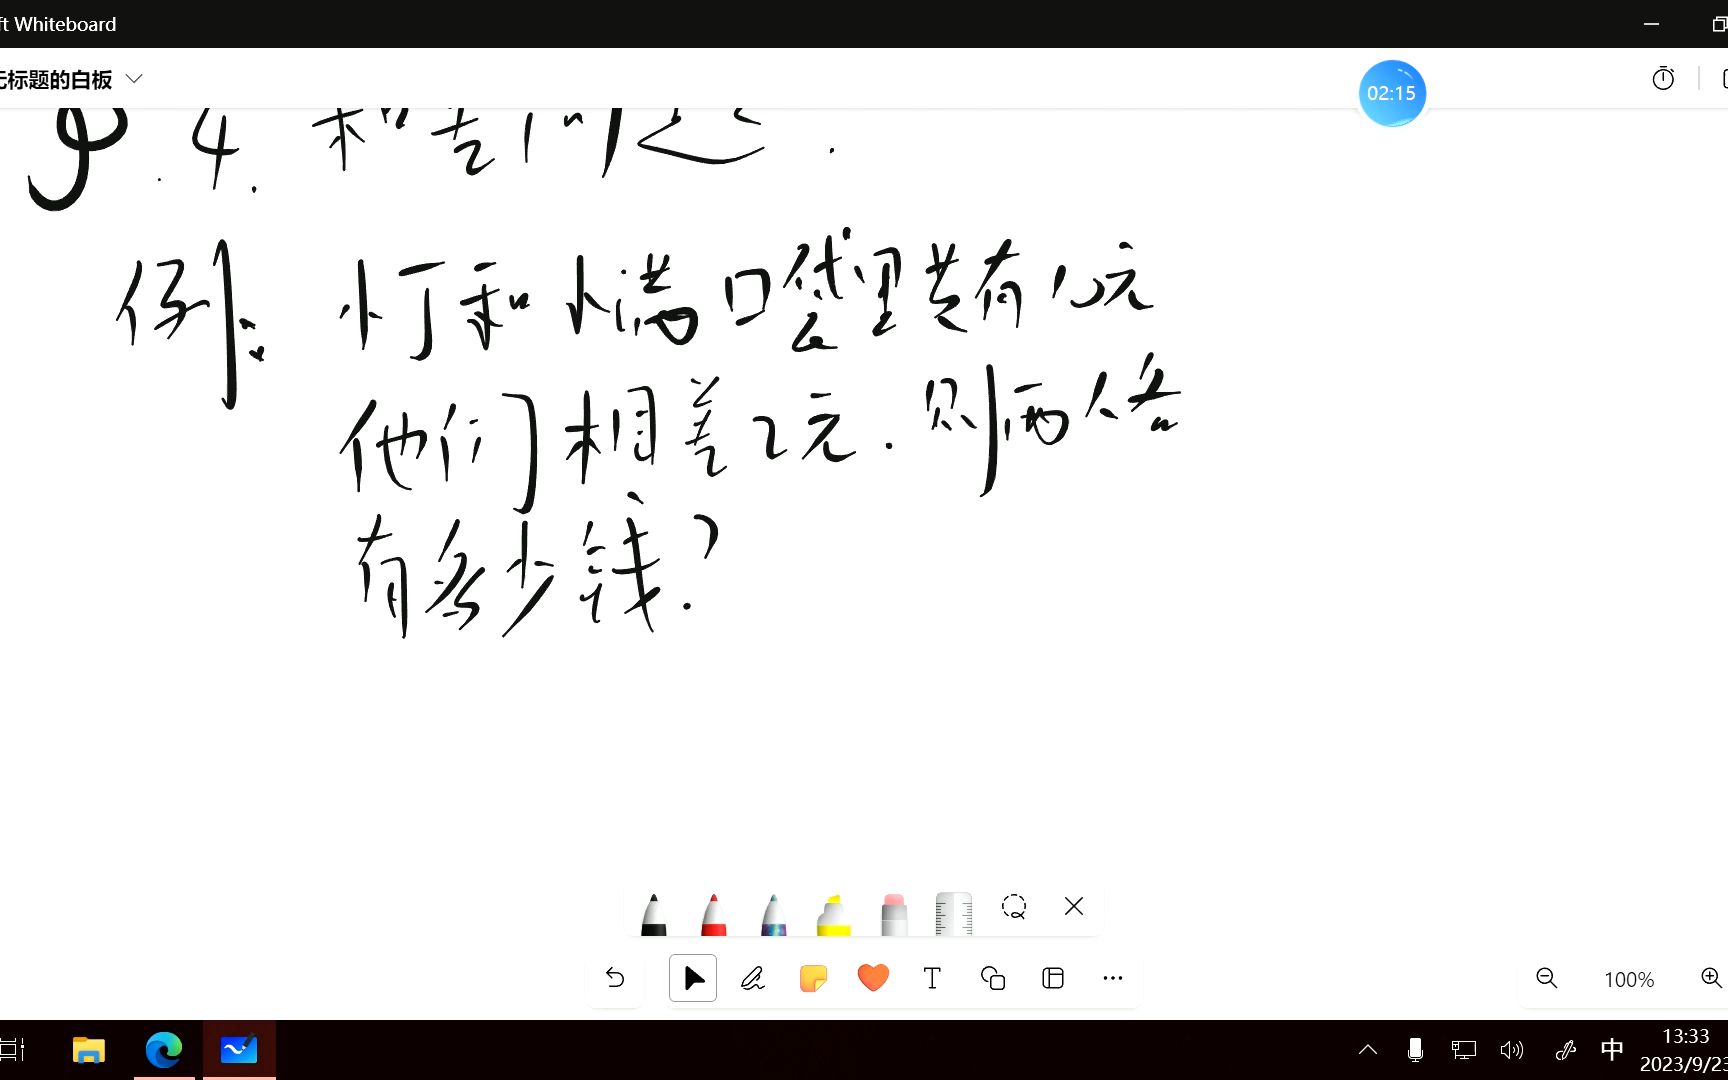 ft Whiteboard
无标题的白板
02:15
.4. 和差问题.
例: 小丁和小满口袋里共有10元
他们相差2元.则两人各
有多少钱?
100%
中
13:33
2023/9/23